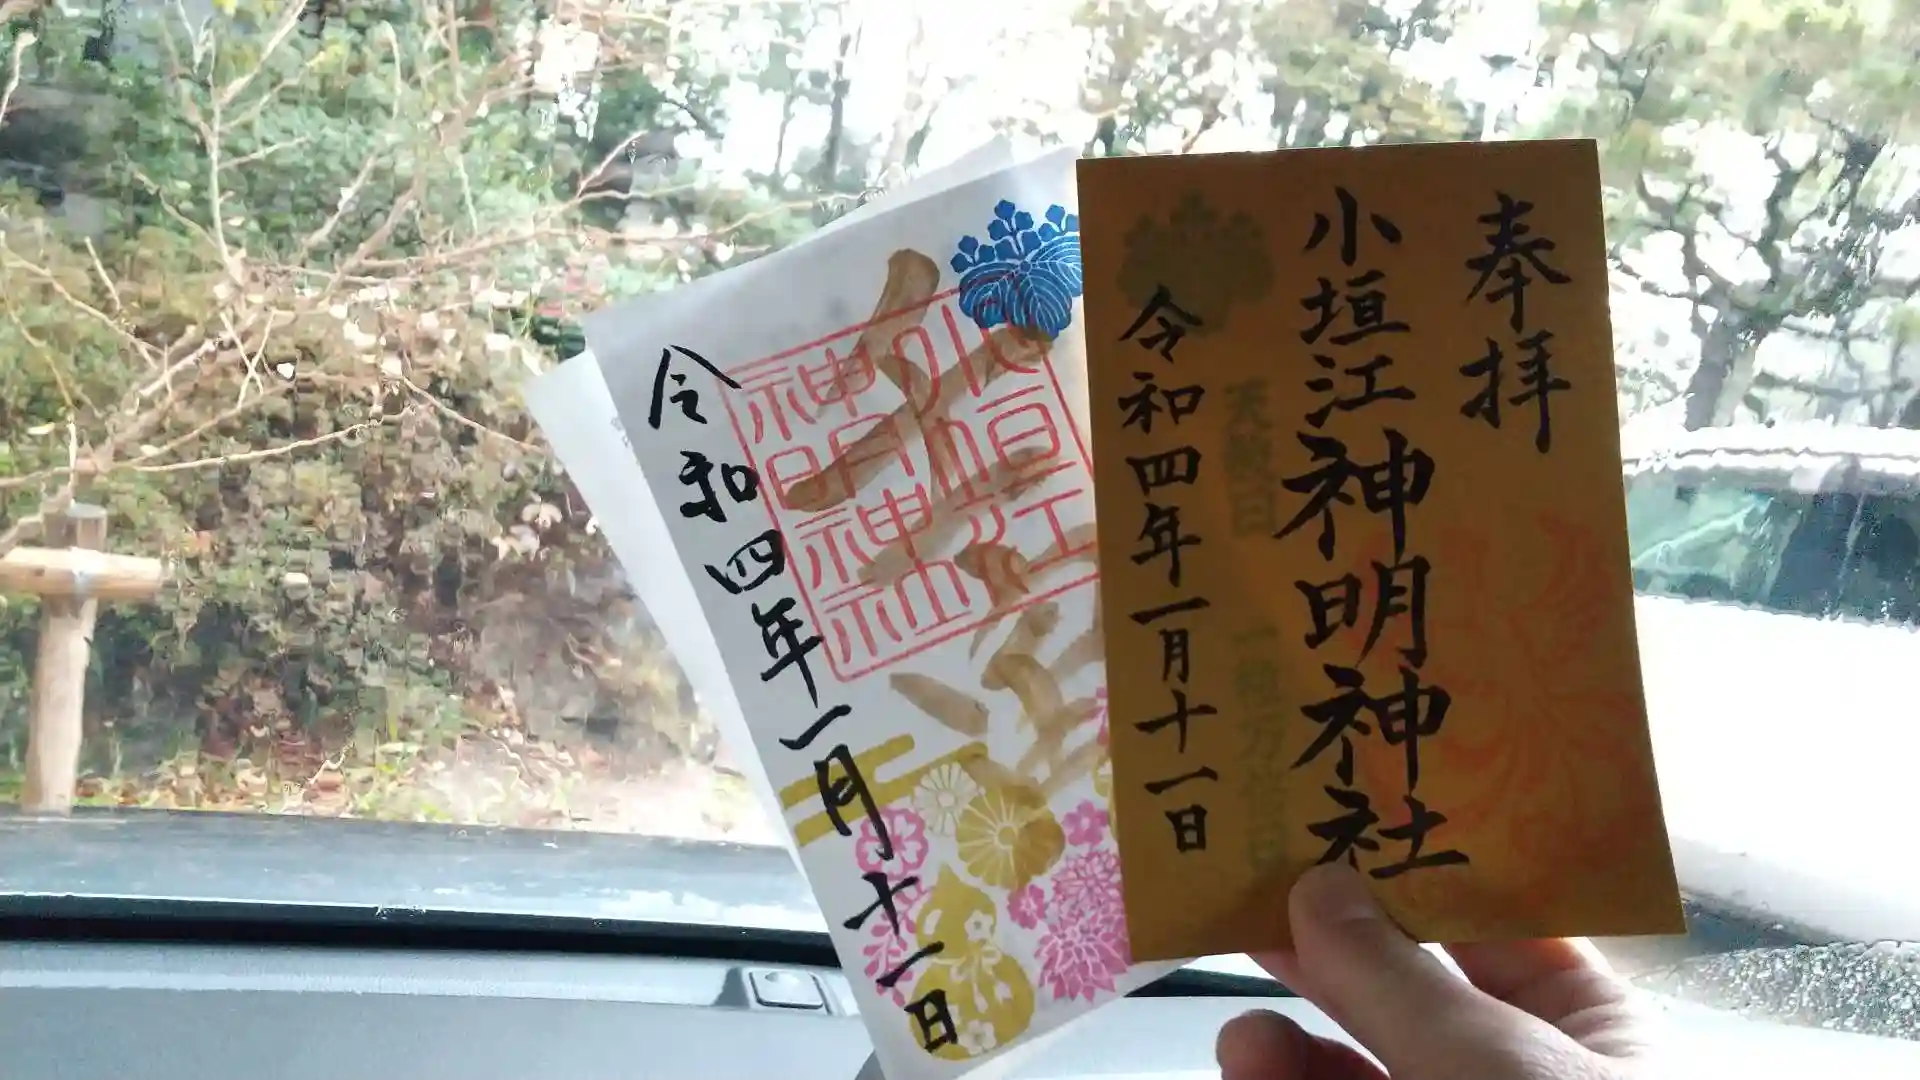 奉拝
小垣江神明神社
天赦日 一粒万倍日
令和四年一月十一日
小垣江
神明神社
令和四年一月十一日